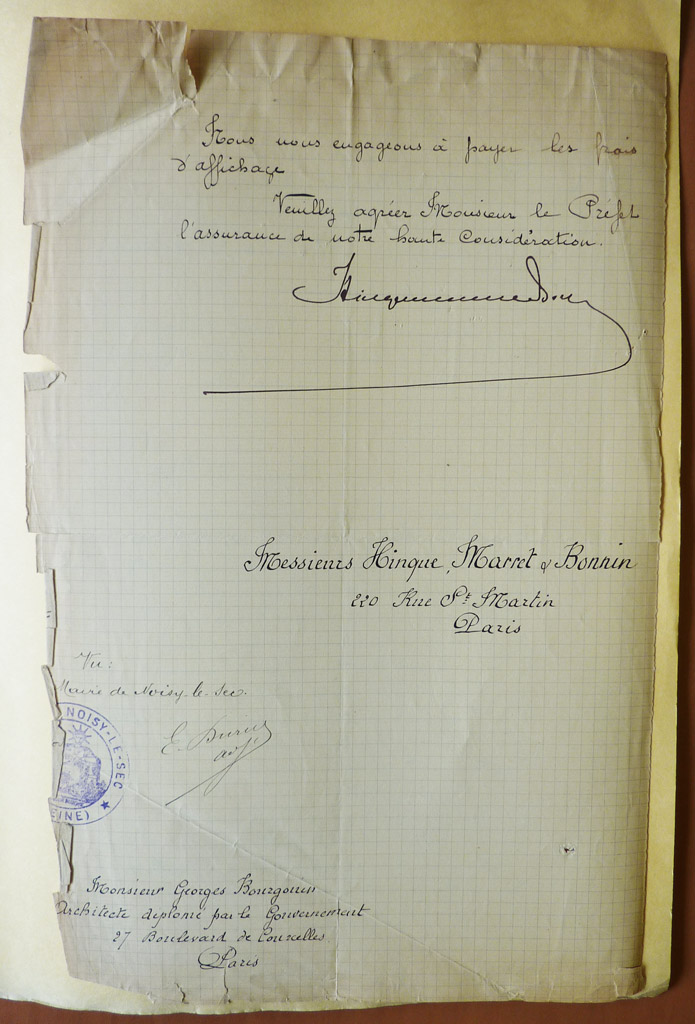 Nous nous engageons à payer les frais
d'affichage
Veuillez agréer Monsieur le Préfet
l'assurance de notre haute Considération.
Messieurs Hinque, Marret & Bonnin
220 Rue St Martin
Paris
Vu:
Maire de Noisy-le-Sec.
NOISY-LE-SEC
EINE)
Monsieur Georges Bourgouin
Architecte diplomé par le Gouvernement
27 Boulevard de Courcelles
Paris